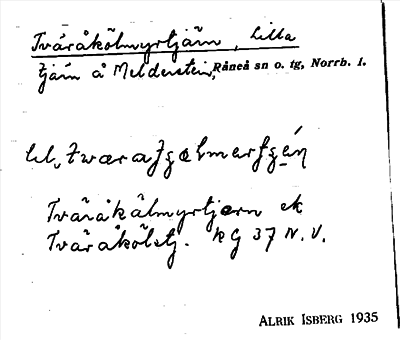 Tväråkölmyrtjärn, Lilla
tjärn å Melderstein, Råneå sn o. tg, Norrb. l.
lıl,
Tväråkälmyrtjärn ek
Tväråkölstj. KG 37 N.V.
ALRIK ISBERG 1935